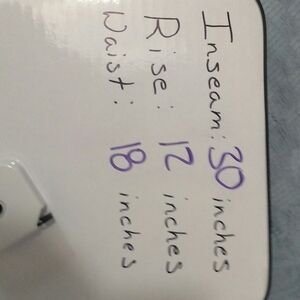 Inseam: 30 inches
Rise: 12 inches
Waist: 18 inches